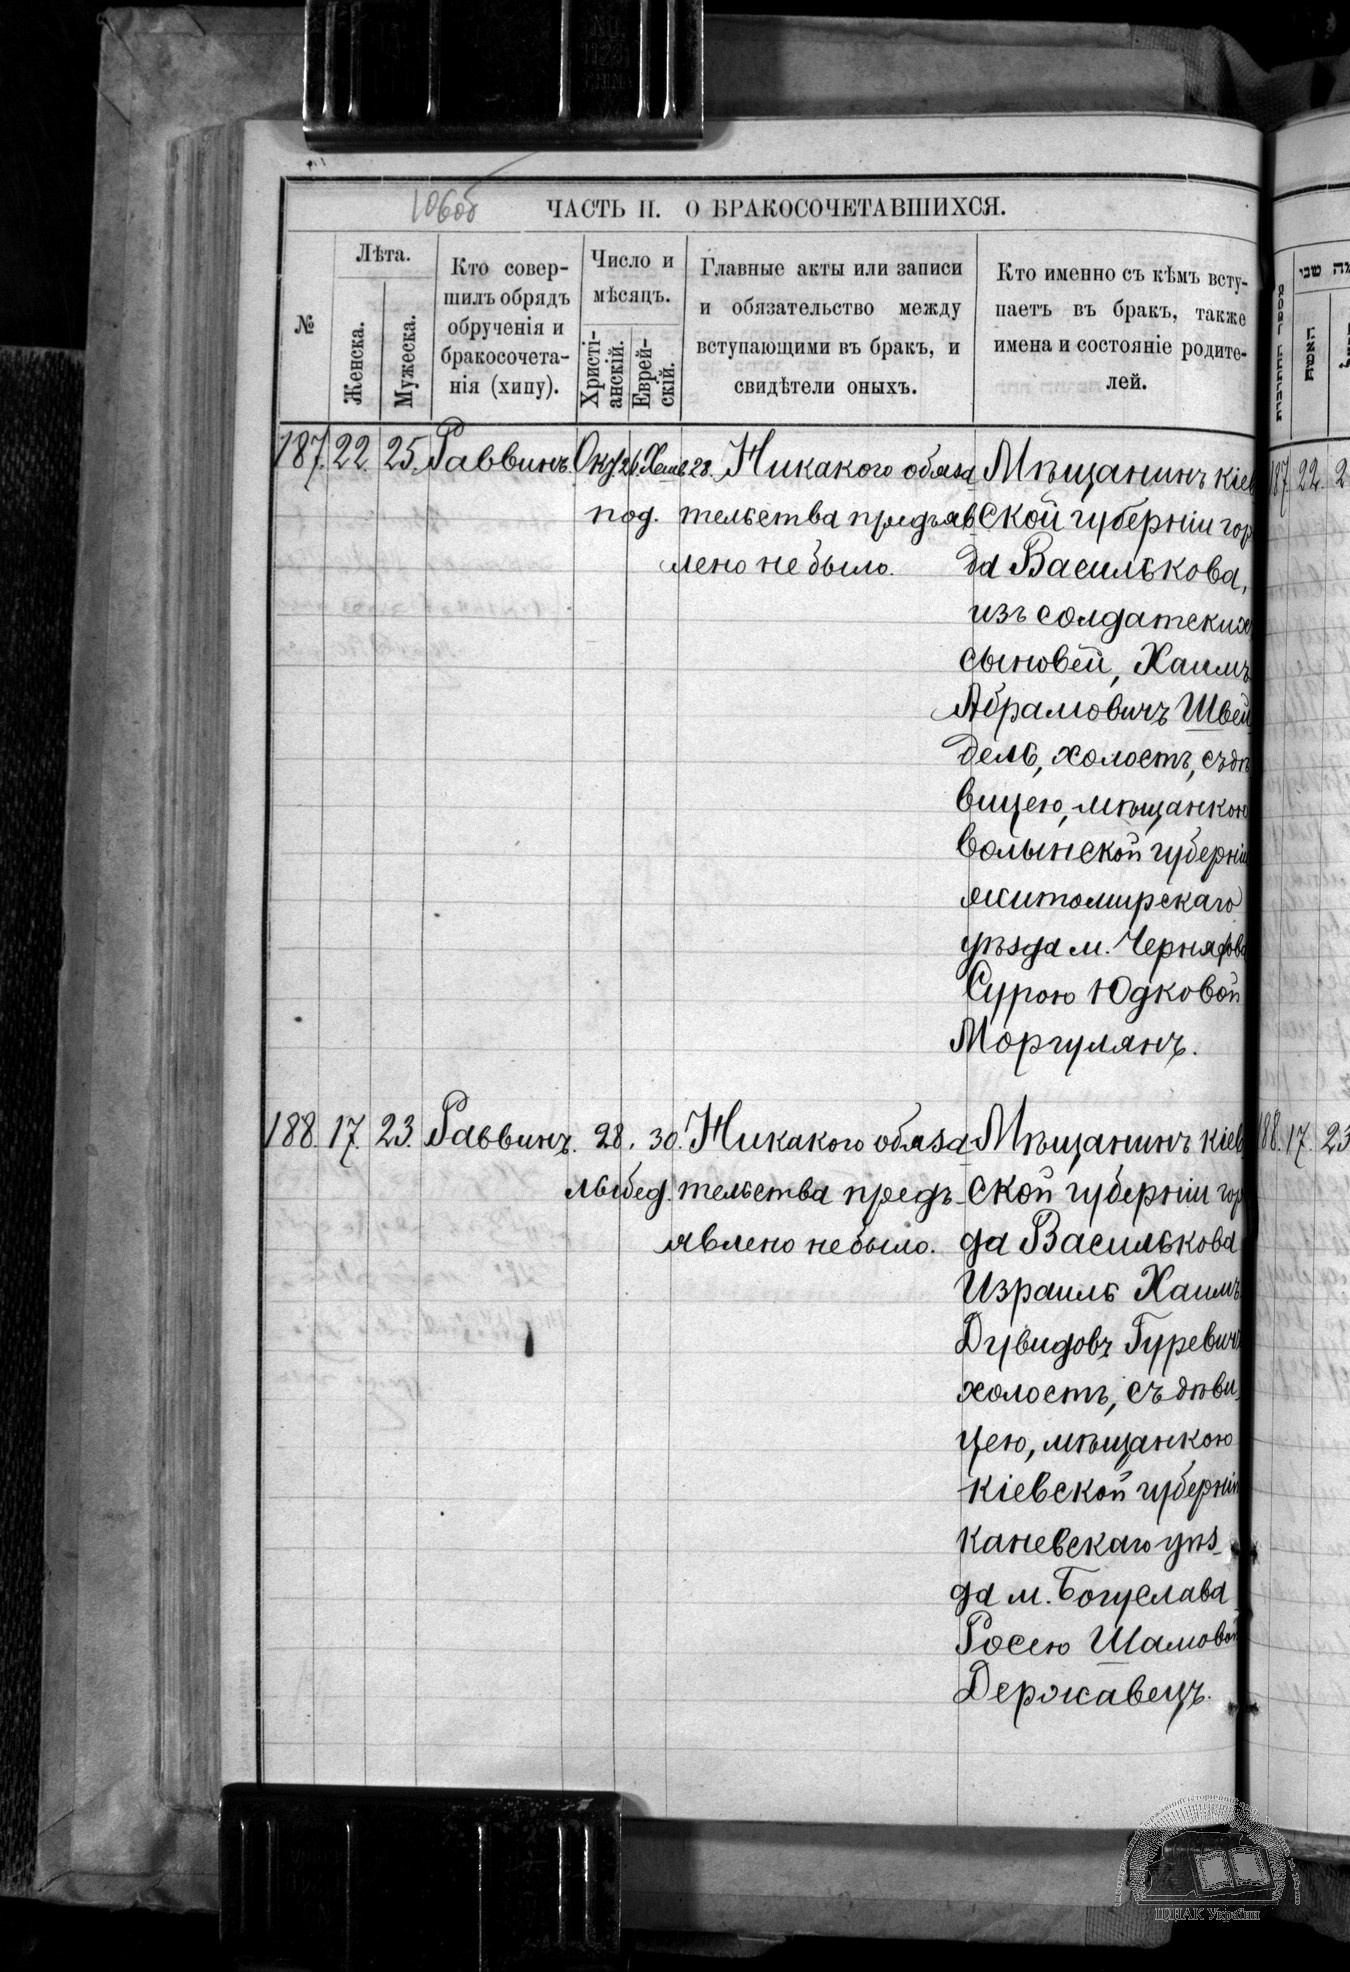 106об
ЧАСТЬ II. О БРАКОСОЧЕТАВШИХСЯ.
№
Лѣта.
Женска.
Мужеска.
Кто совер-
шилъ обрядъ
обрученія и
бракосочета-
нія (хипу).
Число и
мѣсяцъ.
Христі-
анскій.
Еврей-
скій.
Главные акты или записи
и обязательство между
вступающими въ бракъ, и
свидѣтели оныхъ.
Кто именно съ кѣмъ всту-
паетъ въ бракъ, также
имена и состояніе родите-
лей.
187. 22. 25. Раввинъ. Окт. 26. 28. Никакого обяза Мѣщанинъ кіев
под. тельства предъяв ской губерніи гор
лено не было. да Василькова,
изъ солдатских
сыновей, Хаимъ
Абрамовичъ Швей
дель, холостъ, съ дѣ
вицею, мѣщанкою
волынской губерніи
житомирскаго
уѣзда м. Черняхова
Сурою Юдковой
Моргулянъ.
188. 17. 23. Раввинъ. 28. 30. Никакого обяза- Мѣщанинъ кіев
лыбед. тельства предъ- ской губерніи гор
явлено не было. да Василькова
Израиль Хаимъ
Дувидовъ Гуревичъ
холостъ, съ дѣви-
цею, мѣщанкою
кіевской губерніи
каневскаго уѣз-
да м. Богуслава
Росею Шамовой
Державецъ.
187. 22. 2
188. 17. 23
האשה
ЦДІАК України